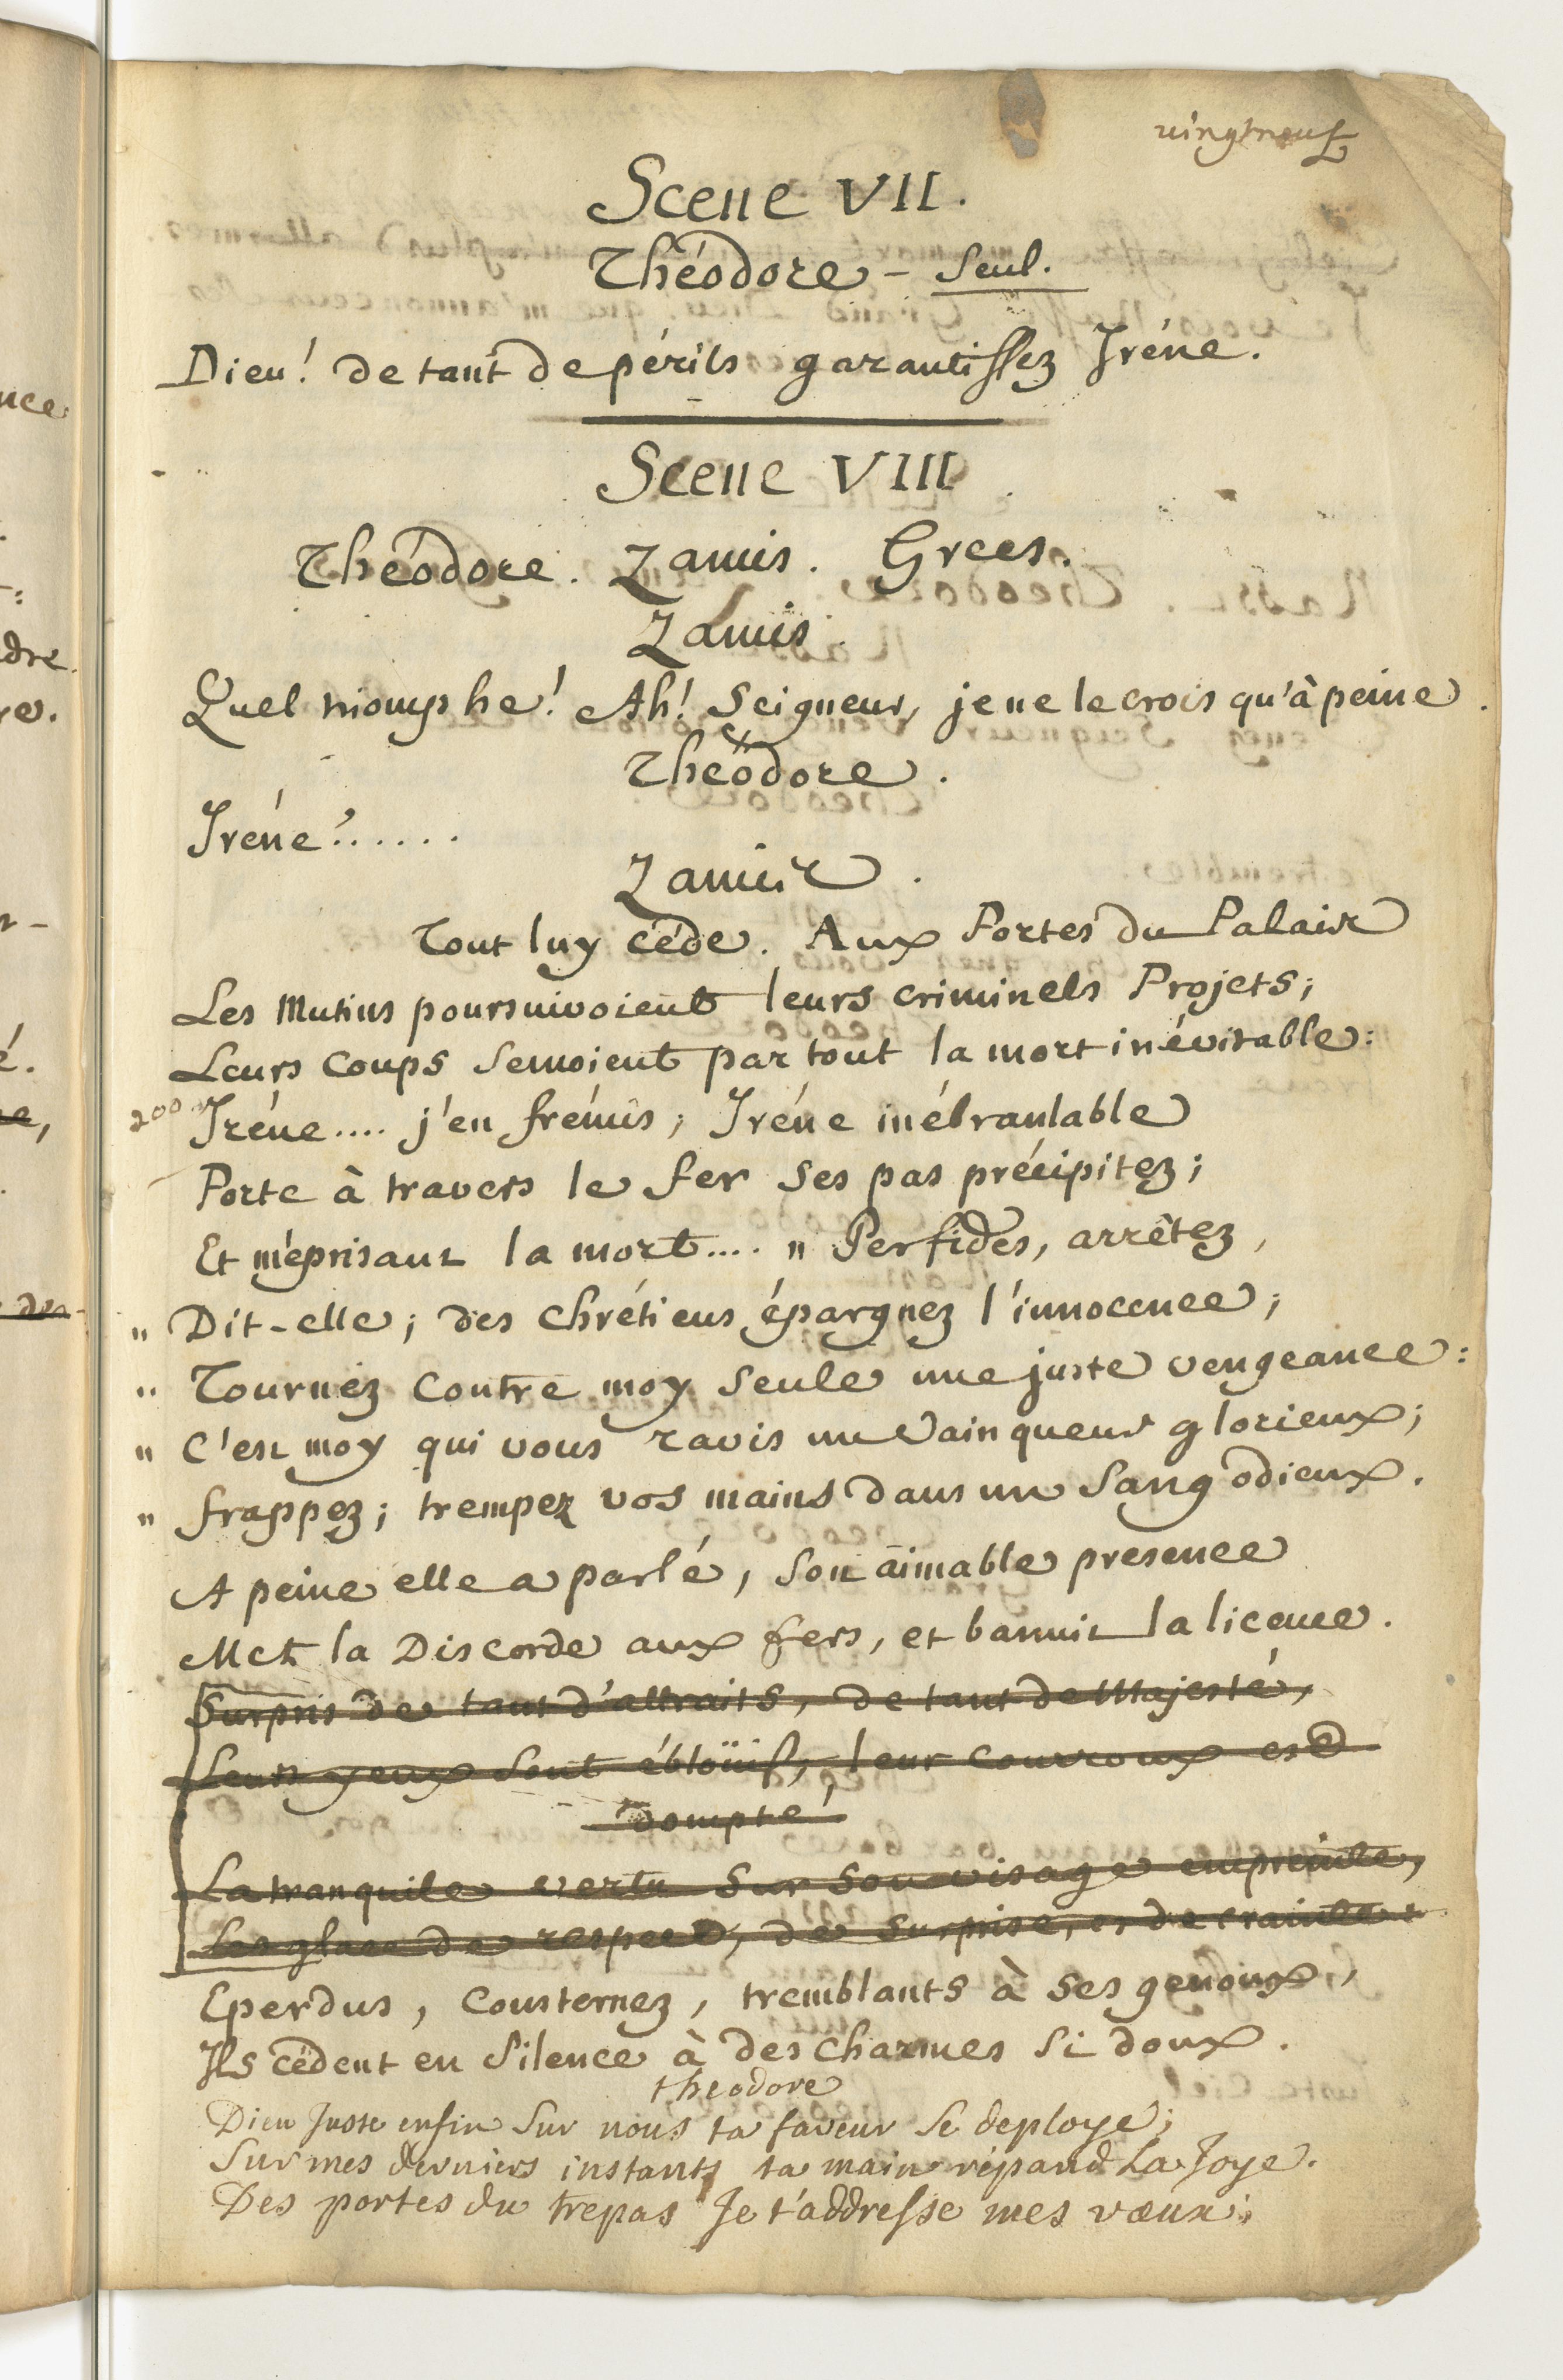 vingtneuf
Scene VII.
Théodore - Seul.
Dieu! de tant de périls garantissez Iréne.
Scene VIII
Théodore. Zamis. Grecs.
Zamis.
Quel triomphe! Ah! Seigneur, je ne le crois qu'à peine.
Théodore.
Iréne!......
Zamis.
Tout luy céde. Aux Portes du Palais
Les Mutins poursuivoient leurs criminels Projets;
Leurs coups semoient par tout la mort inévitable:
200 Iréne.... j'en frémis; Iréne inébranlable
Porte à travers le fer ses pas précipitez;
Et méprisant la mort.... " Perfides, arrêtez,
" Dit-elle; des Chrétiens épargnez l'innocence;
" Tournez contre moy seule une juste vengeance:
" C'est moy qui vous ravis un Vainqueur glorieux;
" frappez; trempez vos mains dans un Sang odieux.
A peine elle a parlé, son aimable presence
Met la Discorde aux fers, et bannit la licence.
Surpris de tant d'attraits, de tant de Majesté,
Leurs yeux sont éblouïs, leur courroux est
dompté,
La tranquile vertu sur son visage empreinte,
Les glace de respect, de surprise, et de crainte:
Eperdus, consternez, tremblants à ses genoux,
Ils cédent en silence à des charmes si doux.
theodore
Dieu Juste enfin sur nous ta faveur se deploye;
Sur mes derniers instants ta main répand La Joye.
Des portes du trepas Je t'addresse mes vœux;